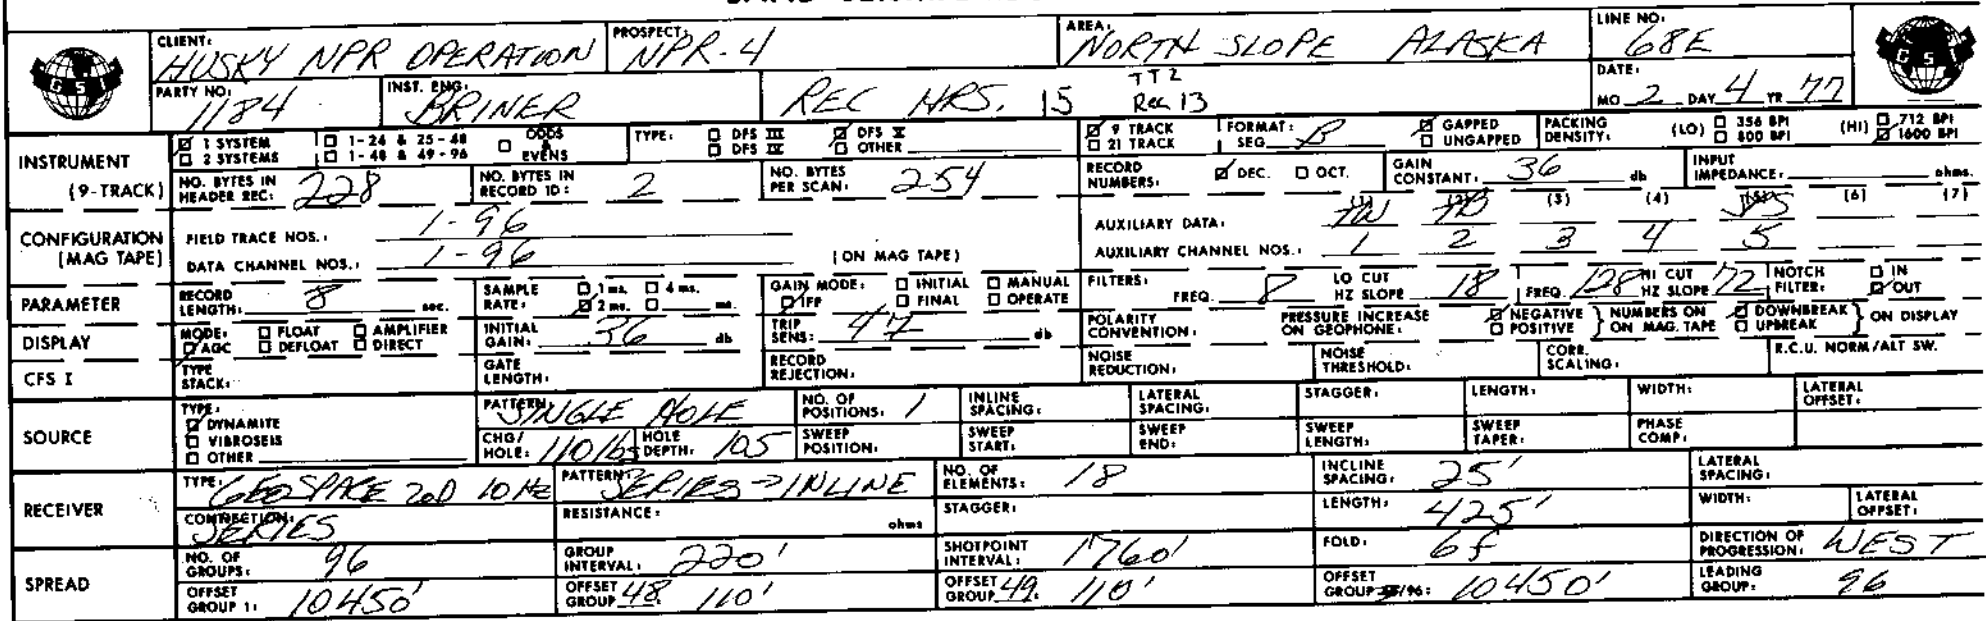 CLIENT: HUSKY NPR OPERATION PROSPECT: NPR-4 AREA: NORTH SLOPE ALASKA LINE NO: 68E
GSI GSI
PARTY NO: 1184 INST. ENG: BRINER REC HRS. 15 TT2 Rec 13 DATE: MO 2 DAY 4 YR 77
INSTRUMENT (9-TRACK)
☑ 1 SYSTEM ☐ 1-24 & 25-48 ☐ ODDS & EVENS TYPE: ☐ DFS III ☑ DFS V ☑ 9 TRACK FORMAT: SEG B ☑ GAPPED PACKING DENSITY: (LO) ☐ 356 BPI (HI) ☐ 712 BPI
☐ 2 SYSTEMS ☐ 1-48 & 49-96 ☐ DFS IV ☐ OTHER ☐ 21 TRACK ☐ UNGAPPED ☐ 800 BPI ☑ 1600 BPI
NO. BYTES IN HEADER REC: 228 NO. BYTES IN RECORD ID: 2 NO. BYTES PER SCAN: 254 RECORD NUMBERS: ☑ DEC. ☐ OCT. GAIN CONSTANT: 36 db INPUT IMPEDANCE: ohms.
CONFIGURATION (MAG TAPE)
(1) (2) (3) (4) (5) (6) (7)
FIELD TRACE NOS.: 1-96 AUXILIARY DATA: TB
DATA CHANNEL NOS.: 1-96 (ON MAG TAPE) AUXILIARY CHANNEL NOS.: 1 2 3 4 5
PARAMETER RECORD LENGTH: 8 sec. SAMPLE RATE: ☐ 1 ms. ☐ 4 ms. ☑ 2 ms. ☐ ms. GAIN MODE: ☐ INITIAL ☐ MANUAL ☑ IFP ☐ FINAL ☐ OPERATE FILTERS: FREQ. 8 LO CUT HZ SLOPE 18 FREQ. 128 HI CUT HZ SLOPE 72 NOTCH FILTER: ☐ IN ☑ OUT
DISPLAY MODE: ☐ FLOAT ☐ AMPLIFIER ☑ AGC ☐ DEFLOAT ☐ DIRECT INITIAL GAIN: 36 db TRIP SENS: 42 db POLARITY CONVENTION: PRESSURE INCREASE ON GEOPHONE: ☑ NEGATIVE ☐ POSITIVE } NUMBERS ON ON MAG. TAPE ☑ DOWNBREAK ☐ UPBREAK } ON DISPLAY
CFS I TYPE STACK: GATE LENGTH: RECORD REJECTION: NOISE REDUCTION: NOISE THRESHOLD: CORR. SCALING: R.C.U. NORM/ALT SW.
SOURCE TYPE: ☑ DYNAMITE ☐ VIBROSEIS ☐ OTHER PATTERN: SINGLE HOLE NO. OF POSITIONS: 1 INLINE SPACING: LATERAL SPACING: STAGGER: LENGTH: WIDTH: LATERAL OFFSET:
CHG/HOLE: 110 lbs HOLE DEPTH: 105 SWEEP POSITION: SWEEP START: SWEEP END: SWEEP LENGTH: SWEEP TAPER: PHASE COMP:
RECEIVER TYPE: GEOSPACE 20D 10 Hz PATTERN: SERIES → INLINE NO. OF ELEMENTS: 18 INCLINE SPACING: 25' LATERAL SPACING:
CONNECTION: SERIES RESISTANCE: ohms STAGGER: LENGTH: 425' WIDTH: LATERAL OFFSET:
SPREAD NO. OF GROUPS: 96 GROUP INTERVAL: 220' SHOTPOINT INTERVAL: 1760' FOLD: 6F DIRECTION OF PROGRESSION: WEST
OFFSET GROUP 1: 10450' OFFSET GROUP 48: 110' OFFSET GROUP 49: 110' OFFSET GROUP /96: 10450' LEADING GROUP: 96